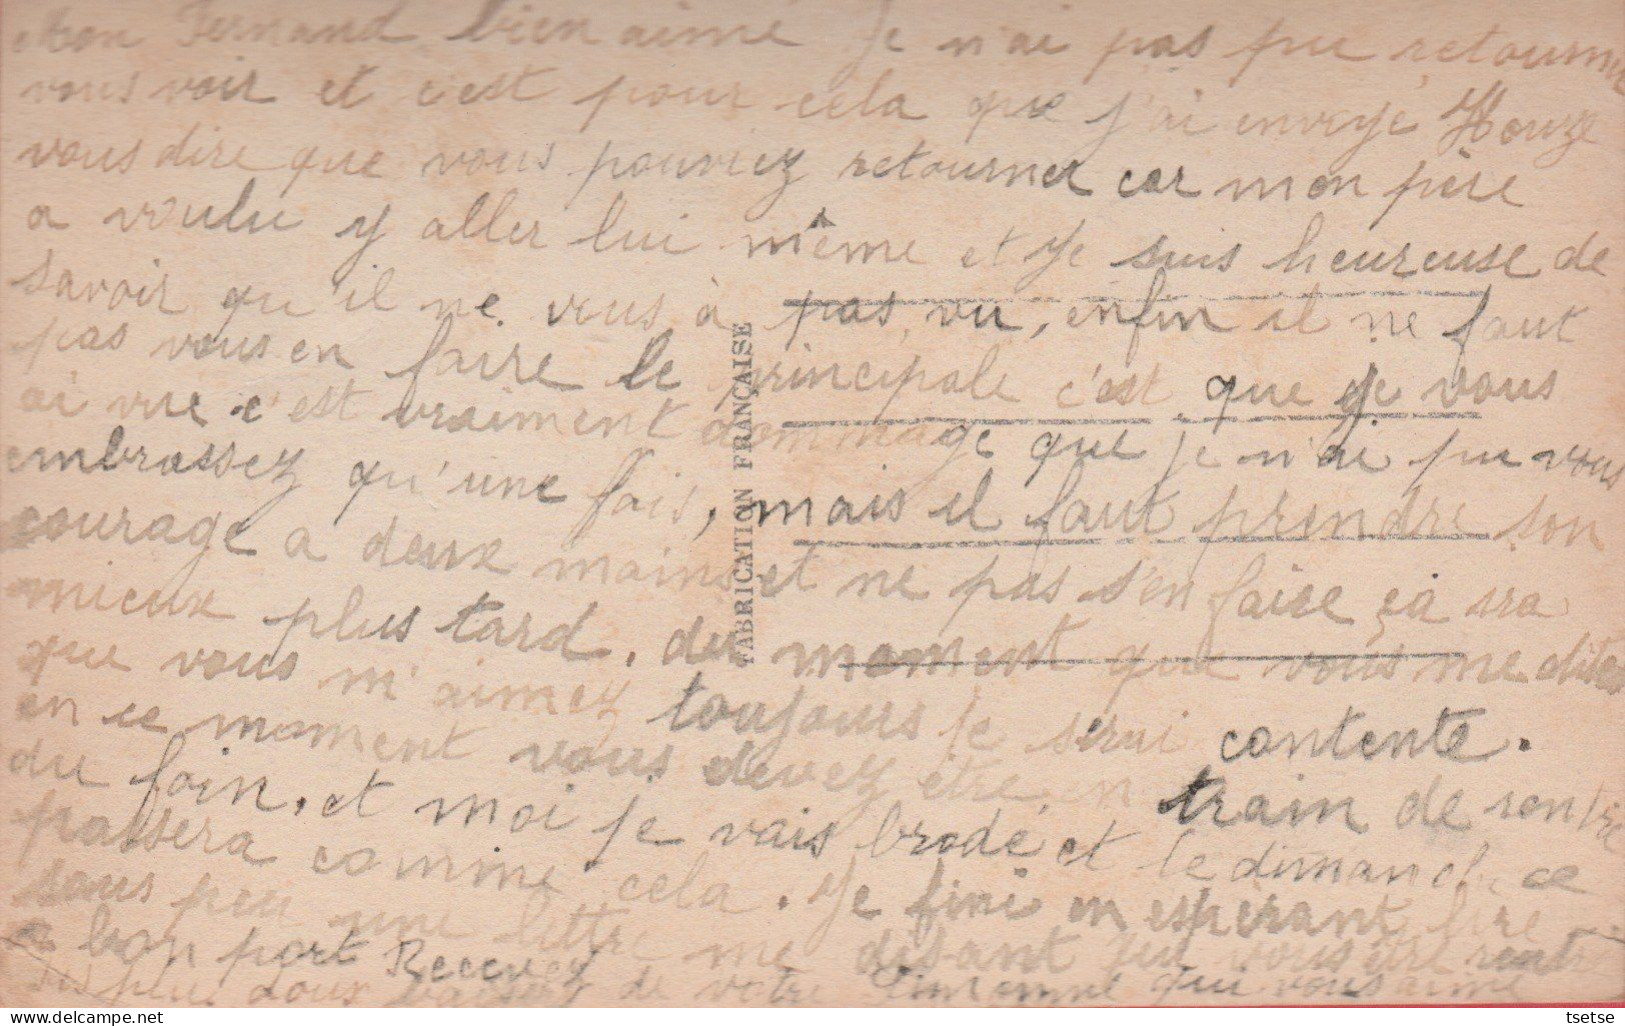 Mon Fernand bien aimé Je n'ai pas pu retourner
vous voir et c'est pour cela que j'ai envoyé Houze
vous dire que vous pouviez retourner car mon père
a voulu y aller lui même et Je suis heureuse de
savoir qu'il ne vous à pas vu, enfin il ne faut
pas vous en faire le principale c'est que Je vous
ai vue c'est vraiment dommage que je n'ai pu vous
embrassez qu'une fois, mais il faut prendre son
courage a deux mains et ne pas s'en faire ça ira
mieux plus tard. du moment que vous me dites
que vous m'aimez toujours je serai contente.
en ce moment vous devez être en train de rentré
du foin. et moi je vais brodé et le dimanche ce
passera comme cela. Je fini en espérant lire
sous peu une lettre me disant que vous être rentré
a bon port Recevez
les plus doux baisers de votre Fernande qui vous aime
FABRICATION FRANÇAISE
tsetse